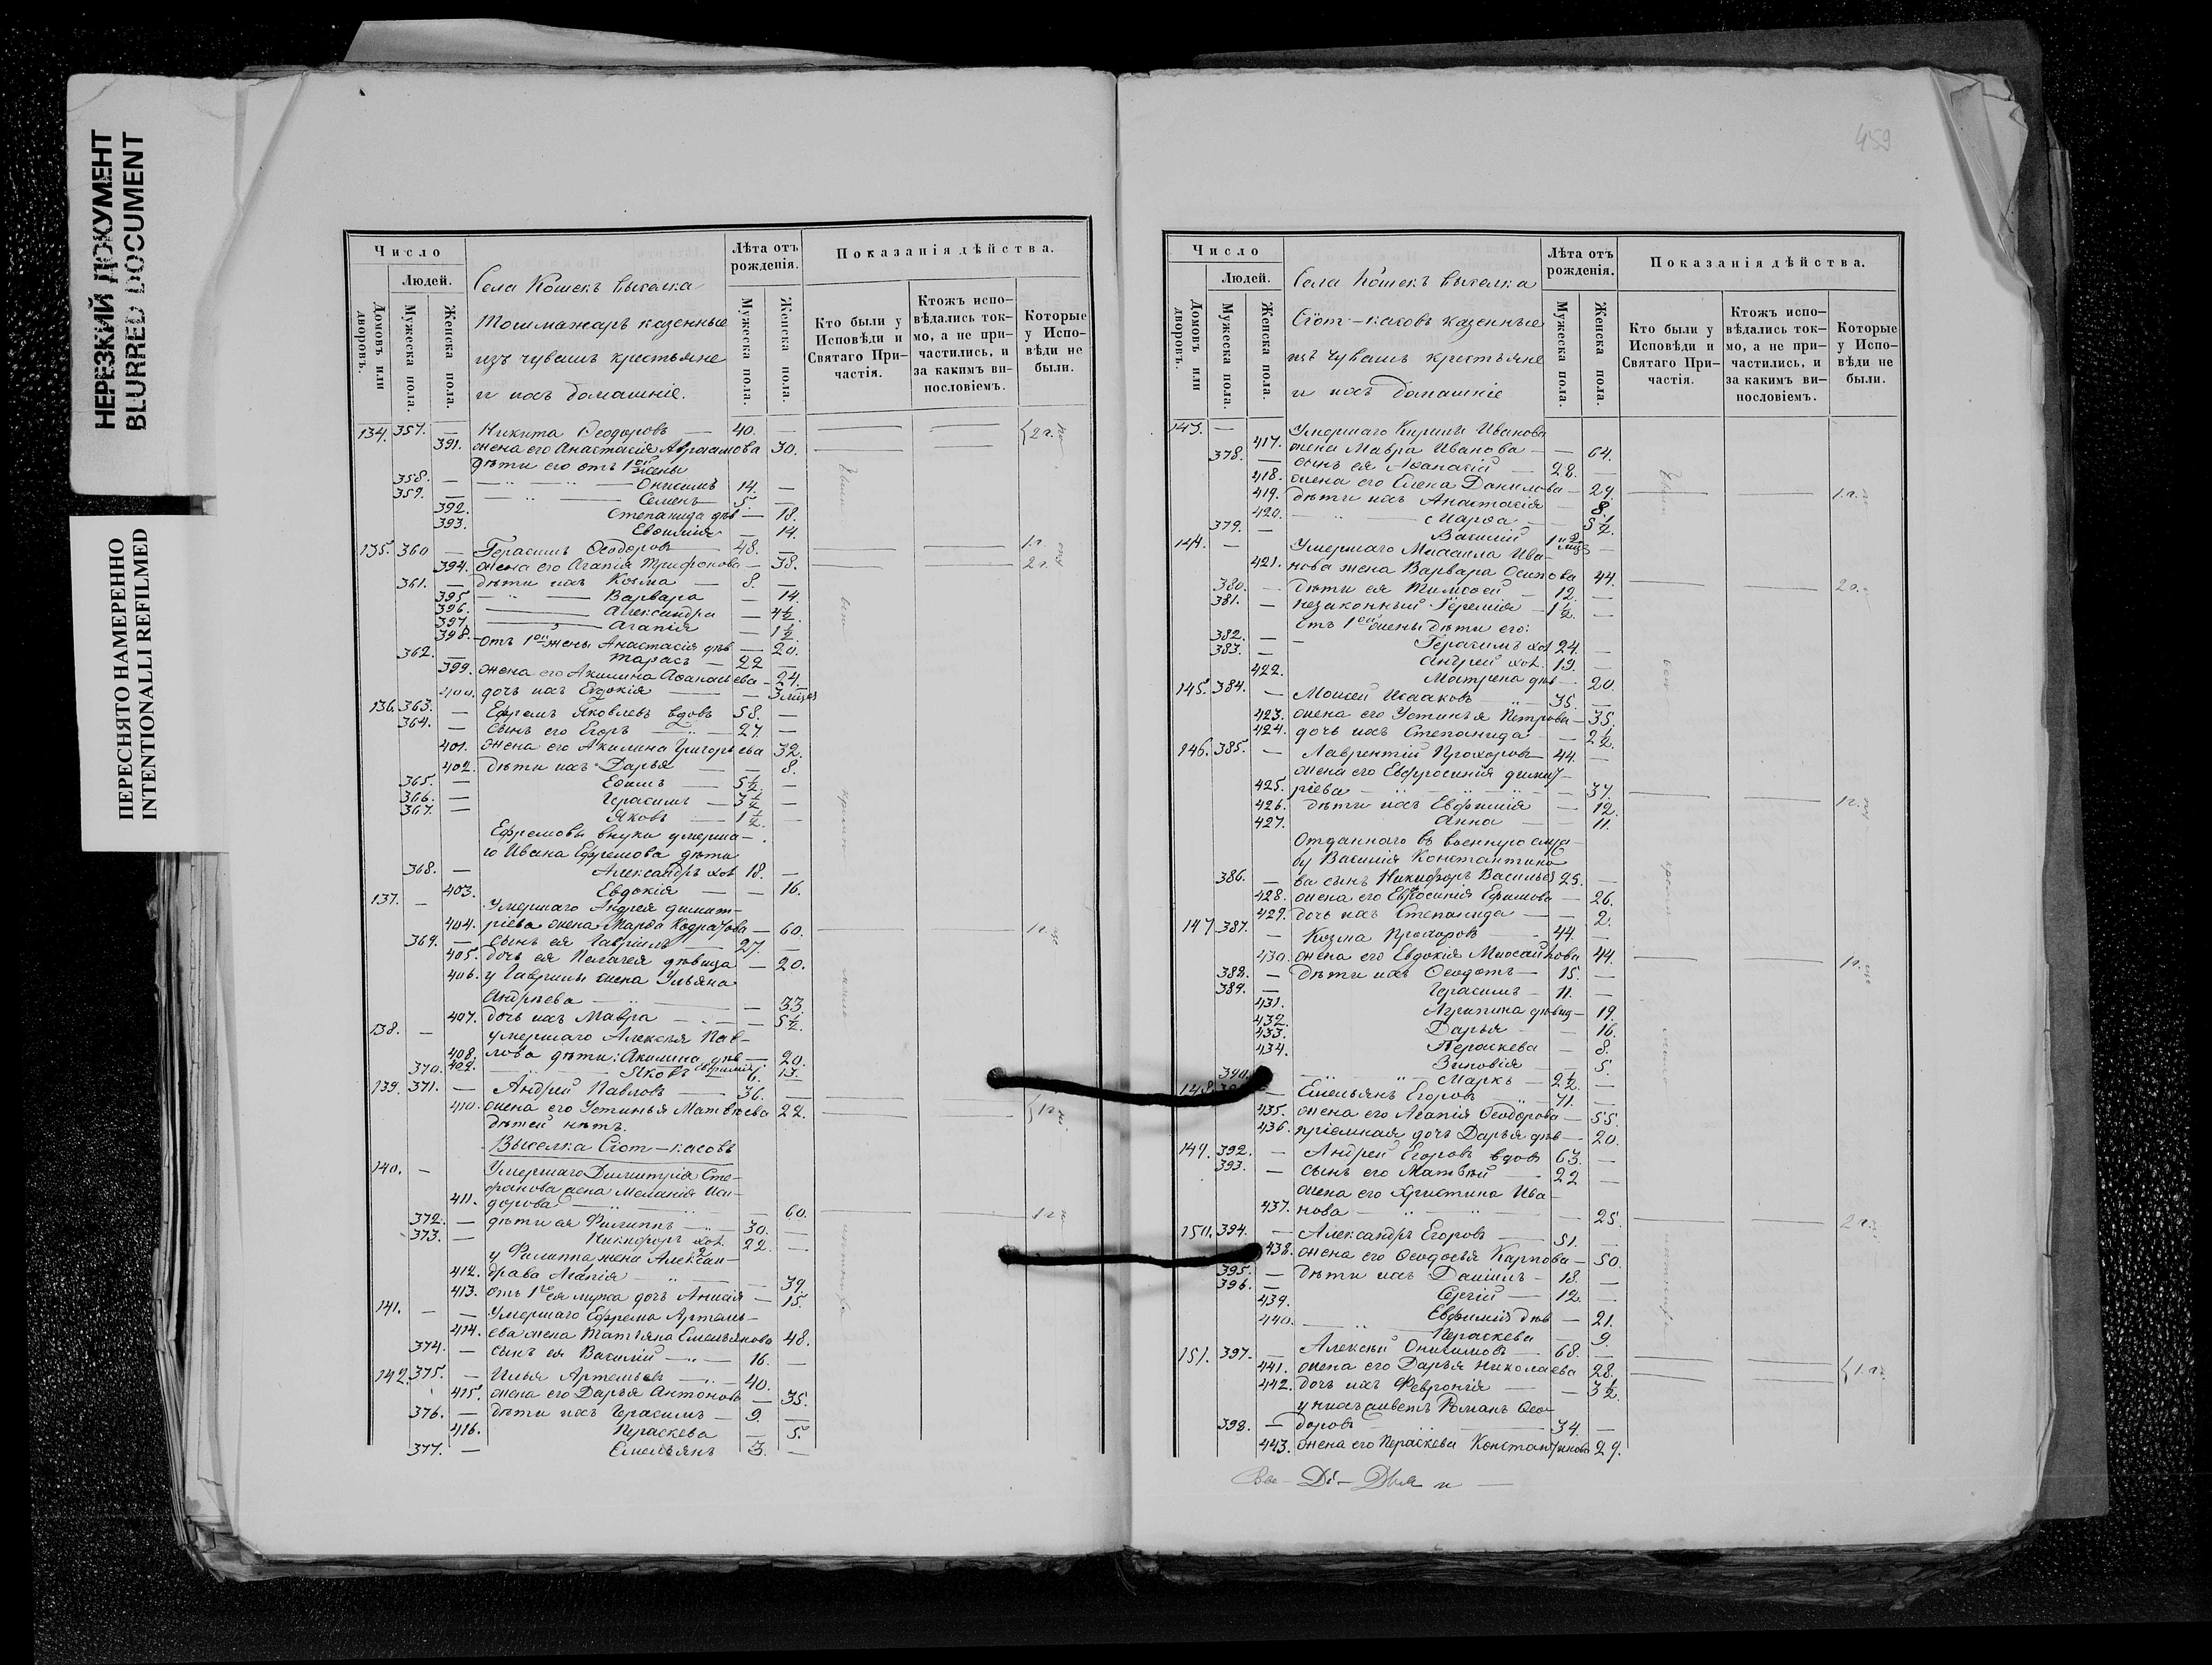 НЕРЕЗКИЙ ДОКУМЕНТ
BLURRED DOCUMENT
ПЕРЕСНЯТО НАМЕРЕННО
INTENTIONALLI REFILMED
Число
Людей.
Домовъ или дворовъ.
Мужеска пола.
Женска пола.
Села Кошекъ выселка
Тошмажаръ казенные
изъ чувашъ крестьяне
и ихъ домашніе.
Лѣта отъ рожденія.
Мужеска пола.
Женска пола.
Показанія дѣйства.
Кто были у Исповѣди и Святаго Причастія.
Ктожъ исповѣдались токмо, а не причастились, и за какимъ винословіемъ.
Которые у Исповѣди не были.
134. 357. — Никита Ѳеодоровъ — 40. — 2 г.
391. жена его Анастасія Авраамова 30.
дѣти его отъ 1ой жены
358. — Онисимъ 14. —
359. — Семенъ 5. —
392. Степанида дѣв — 18.
393. Евѳимія — 14.
135. 360 — Герасимъ Ѳеодоровъ 48. — 1 г.
394. жена его Агапія Трифонова — 38. 2 г.
361. — дѣти ихъ Козма — 8. —
395 — Варвара — 14.
396. Александра — 4½
397. Агапія — 1½
398. отъ 1ой жены Анастасія дѣв — 20.
362. — Тарасъ — 22 —
399. жена его Акилина Аѳанасьева — 24.
400. дочь ихъ Евдокія — 3 мѣс
136. 363. — Ефремъ Яковлевъ вдовъ 58. —
364. — сынъ его Егоръ — 27. —
401. жена его Акилина Григорьева 32.
402. дѣти ихъ Дарья — 8.
365. — Ефимъ 5½ —
366. — Герасимъ — 3½ —
367. — Яковъ — 1½ —
Ефремовы внуки умерша-
го Ивана Ефремова дѣти
368. — Александръ хол 18. —
403. Евдокія — 16.
137. — Умершаго Андрея димит-
404. ріева жена Марѳа Кодратова — 60. 1 г.
369. — сынъ ея Гавріилъ 27. —
405. дочь ея Пелагея дѣвица — 20.
406. у Гаврилы жена Ульяна
Андреева — 33.
407. дочь ихъ Мавра — 5½.
138. — умершаго Алексѣя Пав-
408. лова дѣти: Акилина дѣв — 20.
370. 409. Яковъ 6. 13.
139. 371. — Андрей Павловъ 36. —
410. жена его Устинья Матвѣева 22. 1 г.
дѣтей нѣтъ.
Выселка Сіот-касовъ
140. — Умершаго Димитрія Сте-
фанова жена Меланія Иси-
411. дорова — 60. 1 г.
372. — дѣти ея Филиппъ — 30. —
373. — Никифоръ хол 22. —
у Филиппа жена Алексан-
412. драва Агапія — 39.
413. отъ 1го ея мужа дочь Анисія — 15.
141. — — Умершаго Ефрема Артемь-
414. ева жена Татьяна Емельянова 48.
374. — сынъ ея Василій — 16. —
142. 375. — Илья Артемьевъ — 40.
415. жена его Дарья Антонова — 35.
376. — дѣти ихъ Герасимъ — 9. —
416. Пераскева — 5.
377. — Емельянъ 3. —
459
Число
Людей.
Домовъ или дворовъ.
Мужеска пола.
Женска пола.
Села Кошекъ выселка
Сіот-касовъ казенные
изъ чувашъ крестьяне
и ихъ домашніе
Лѣта отъ рожденія.
Мужеска пола.
Женска пола.
Показанія дѣйства.
Кто были у Исповѣди и Святаго Причастія.
Ктожъ исповѣдались токмо, а не причастились, и за какимъ винословіемъ.
Которые у Исповѣди не были.
143. — Умершаго Кирилы Иванова
417. жена Мавра Иванова — 64.
378. — сынъ ея Аѳанасій — 28. —
418. жена его Елена Данилова — 29. 1 г.
419. дѣти ихъ Анастасія — 8.
420. Марѳа — 5½.
379. — Василій —
144. — Умершаго Михаила Ива-
421. нова жена Варвара Осипова 44. 2 г.
380. — дѣти ея Тимоѳей — 12. —
381. — незаконный Іеремія — 1½ —
отъ 1ой жены дѣти его:
382. — Герасимъ хол 24. —
383. — Андрей хол. 19. —
422. Матрена дѣв — 20.
145. 384. — Моисей Исааковъ — 35. —
423. жена его Устинья Петрова — 35.
424. дочь ихъ Степанида — 2½.
146. 385. — Лаврентій Прохоровъ — 44. —
жена его Евфросинія димит-
425. ріева — 37. 1 г.
426. дѣти ихъ Евфимія — 12.
427. Анна — 11.
Отданнаго въ военную служ-
бу Василія Константино-
386. — ва сынъ Никифоръ Васильев 25. —
428. жена его Евфросинія Ефимова — 26.
429. дочь ихъ Степанида — 2.
147 387. — Козма Прохоровъ — 44. —
430. жена его Евдокія Михайлова 44. 1 г.
388. — дѣти ихъ Ѳеодотъ — 15. —
389. — Герасимъ — 11. —
431. Агрипина дѣвиц — 19.
432. Дарья — 16.
433. Пераскева — 8.
434. Зиновія — 5.
390. Маркъ — 2½. —
148. — Емельянъ Егоровъ — 71. —
435. жена его Агапія Ѳеодорова — 55.
436. пріемная дочь Дарья дѣв — 20.
149. 392. — Андрей Егоровъ вдовъ 63. —
393. — сынъ его Матвѣй — 22 —
жена его Христина Ива-
437. нова — 25. 2 г.
150. 394. — Александръ Егоровъ — 51. —
438. жена его Ѳеодосья Карпова — 50.
395. — дѣти ихъ Даніилъ — 18. —
396. — Сергій — 12. —
439. Евфимія дѣв — 21.
440. Пераскева — 9.
151. 397. — Алексѣй Онисимовъ — 68. —
441. жена его Дарья Николаева 28. 1 г.
442. дочь ихъ Февронія — 3½.
у нихъ живетъ Романъ Ѳео-
398. — доровъ — 34. —
443. жена его Пераскева Константинова 29.